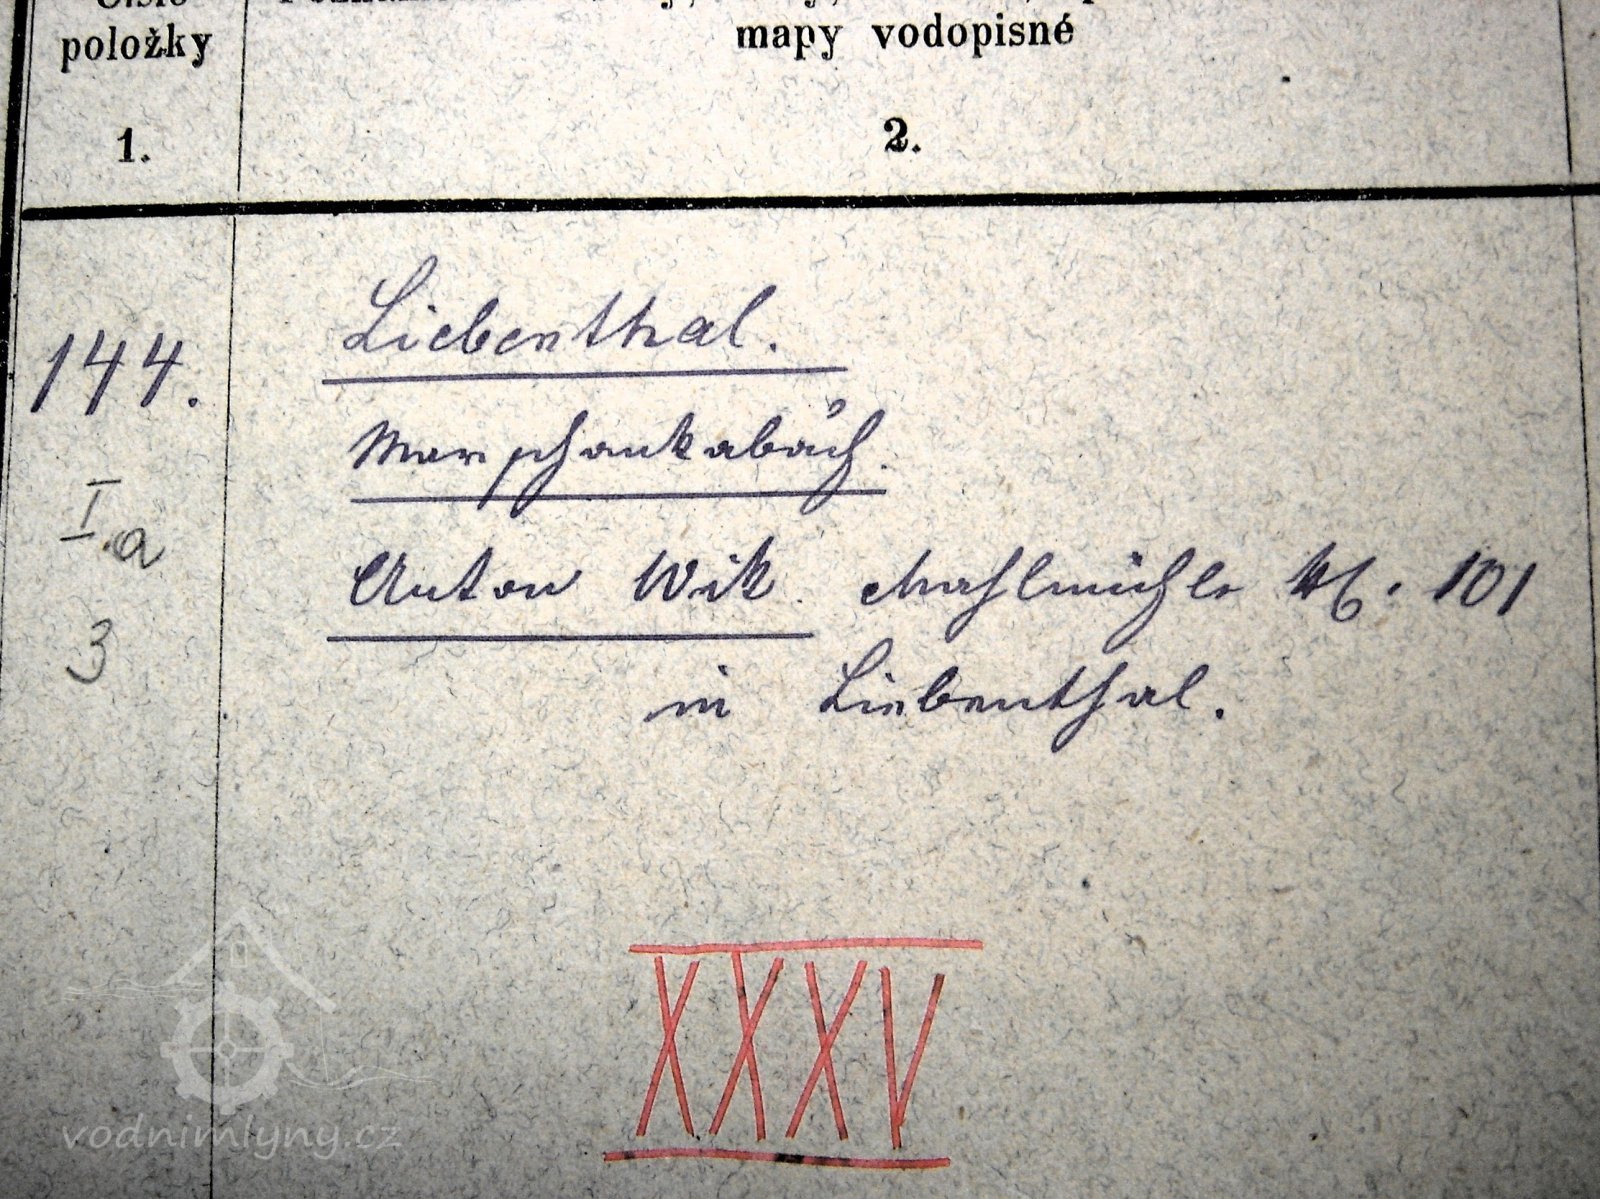 položky
mapy vodopisné
1.
2.
144.
Liebenthal.
I.a
Anton Wik. Mahlmühle № 101
3
in Liebenthal.
XXXV
vodnimlyny.cz